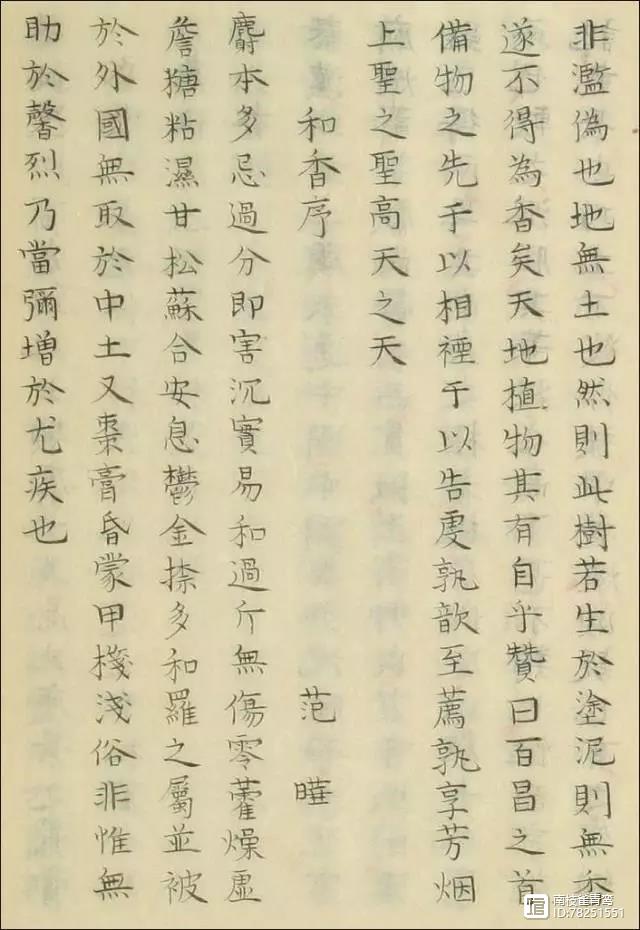 非濫偽也地無土也然則此樹若生於塗泥則無香
遂不得為香矣天地植物其有自乎贊曰百昌之首
備物之先于以相禋于以告虔孰歆至薦孰享芳烟
上聖之聖高天之天
和香序 范曄
麝本多忌過分即害沉實易和過斤無傷零藿燥虛
詹搪粘濕甘松蘇合安息鬱金捺多和羅之屬並被
於外國無取於中土又棗膏昏蒙甲棧淺俗非惟無
助於馨烈乃當彌增於尤疾也
南枝雀青鸾
ID:78251551